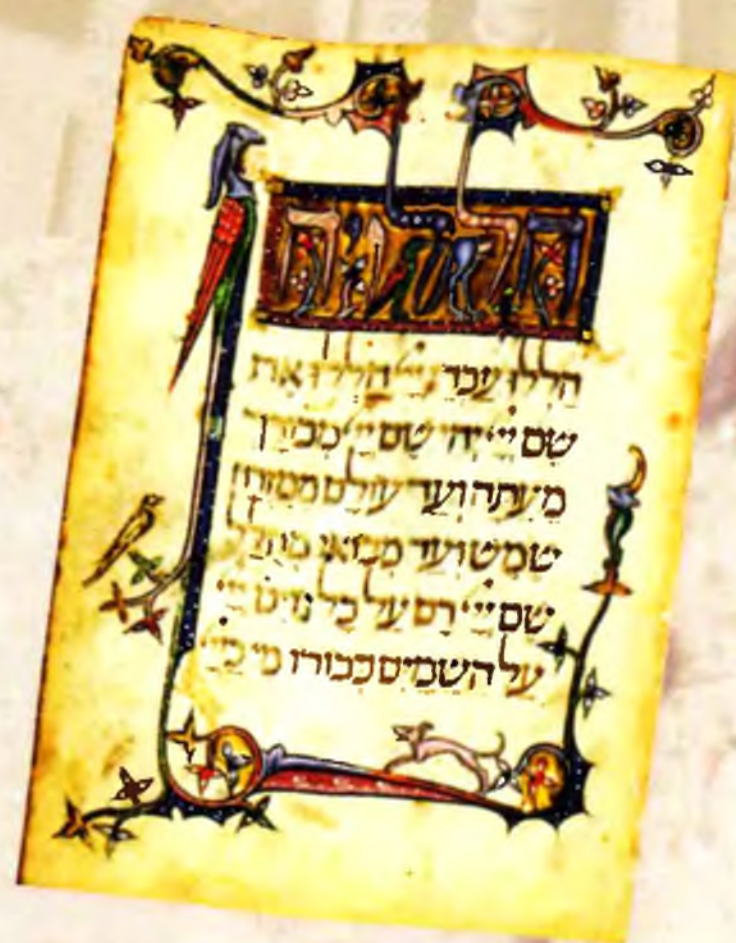 הללויה
הללו עבדי ייי הללו את
שם ייי יהי שם ייי מבורך
מעתה ועד עולם ממזרח
שמש ועד מבואו מהלל
שם ייי רם על כל גוים ייי
על השמים כבודו מי כייי